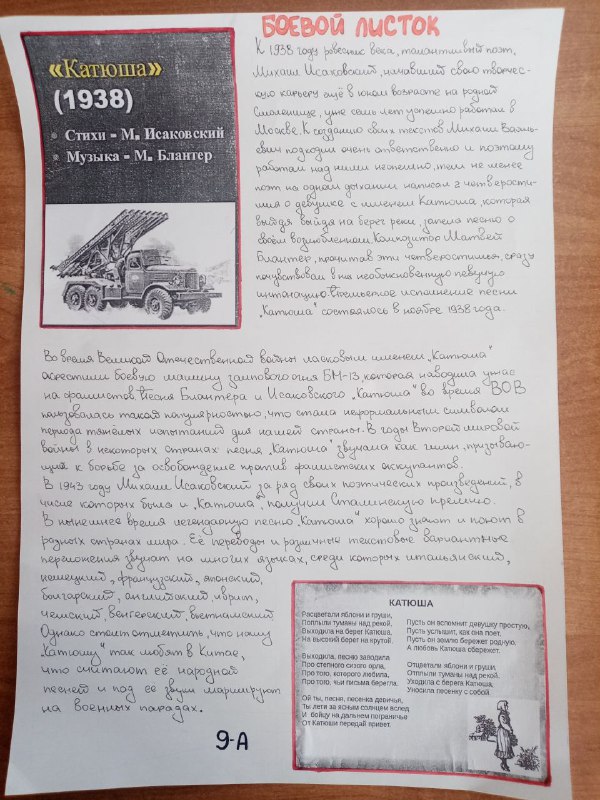 БОЕВОЙ ЛИСТОК
«Катюша»
(1938)
Стихи - М. Исаковский
Музыка - М. Блантер
К 1938 году ровесник века, талантливый поэт,
Михаил Исаковский, начавший свою творчес-
кую карьеру ещё в юном возрасте на родной
Смоленщине, уже семь лет успешно работал в
Москве. К созданию своих текстов Михаил Василь-
евич подходил очень ответственно и поэтому
работал над ними неспешно, тем не менее
поэт на одном дыхании написал 2 четверости-
шия о девушке с именем Катюша, которая
выйдя выйдя на берег реки, запела песню о
своём возлюбленном. Композитор Матвей
Блантер, прочитав эти четверостишья, сразу
почувствовал в них необыкновенную певучую
интонацию. Премьерное исполнение песни
"Катюша" состоялось в ноябре 1938 года.
Во время Великой Отечественной войны ласковым именем "Катюша"
окрестили боевую машину залпового огня БМ-13, которая наводила ужас
на фашистов. Песня Блантера и Исаковского "Катюша" во время ВОВ
пользовалась такой популярностью, что стала неформальным символом
периода тяжёлых испытаний для нашей страны. В годы Второй мировой
войны в некоторых странах песня "Катюша" звучала как гимн, призываю-
щий к борьбе за освобождение против фашистских оккупантов.
В 1943 году Михаил Исаковский за ряд своих поэтических произведений, в
числе которых была и "Катюша", получил Сталинскую премию.
В нынешнее время легендарную песню "Катюша" хорошо знают и поют в
разных странах мира. Её переводы и различные текстовые вариантные
переложения звучат на многих языках, среди которых итальянский,
немецкий, французский, японский,
болгарский, английский, иврит,
чешский, венгерский, вьетнамский.
Однако стоит отметить, что нашу
"Катюшу" так любят в Китае,
что считают её народной
песней и под её звуки маршируют
на военных парадах.
9-А
КАТЮША
Расцветали яблони и груши,
Поплыли туманы над рекой.
Выходила на берег Катюша,
На высокий берег на крутой.
Выходила, песню заводила
Про степного сизого орла,
Про того, которого любила,
Про того, чьи письма берегла.
Ой ты, песня, песенка девичья,
Ты лети за ясным солнцем вслед
И бойцу на дальнем пограничье
От Катюши передай привет.
Пусть он вспомнит девушку простую,
Пусть услышит, как она поет,
Пусть он землю бережет родную,
А любовь Катюша сбережет.
Отцветали яблони и груши,
Отплыли туманы над рекой.
Уходила с берега Катюша,
Уносила песенку с собой.